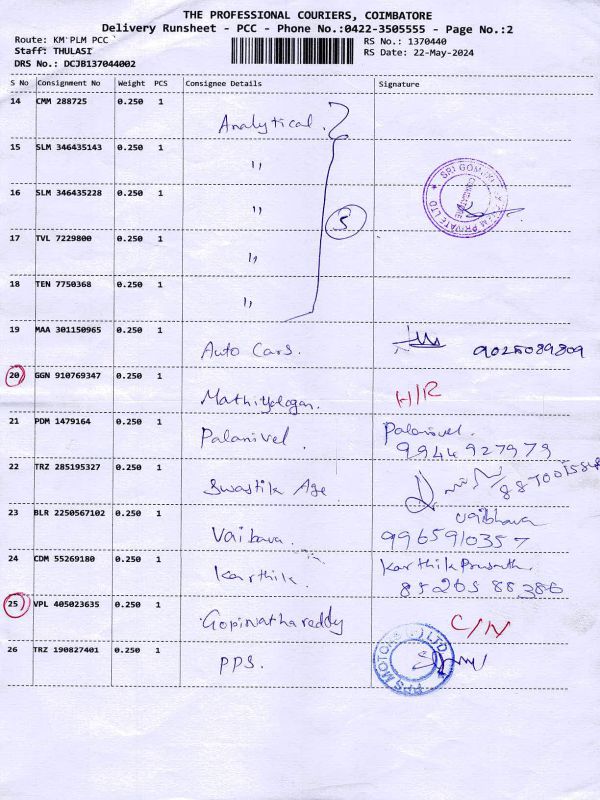 THE PROFESSIONAL COURIERS, COIMBATORE
Delivery Runsheet - PCC - Phone No.:0422-3505555 - Page No.:2
Route: KM PLM PCC
RS No.: 1370440
Staff: THULASI
RS Date: 22-May-2024
DRS No.: DCJB137044002
S No Consignment No Weight PCS Consignee Details Signature
14 CMM 288725 0.250 1
Analytical.
15 SLM 346435143 0.250 1
"
16 SLM 346435228 0.250 1
"
5
SRI
PRIVATE LTD
17 TVL 7229800 0.250 1
"
18 TEN 7750368 0.250 1
"
19 MAA 301150965 0.250 1
Auto Cars. 9025089809
20 GGN 910769347 0.250 1
Mathiyalogan. H/R
21 PDM 1479164 0.250 1
Palanivel. Palanivel.
9944927979
22 TRZ 285195327 0.250 1
Swastik Age
23 BLR 2250567102 0.250 1
Vaibava. Vaibhava
9965910357
24 CDM 55269180 0.250 1
Karthik. Karthik Prasath.
85265 88386
25 VPL 405023635 0.250 1
Gopinatha reddy C/N
26 TRZ 190827401 0.250 1
PPS.
PPS MOTORS (P) LTD